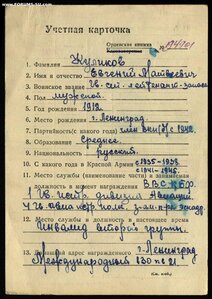 WWW.FORUMS-SU.COM
Учетная карточка
Орденская книжка
№ 194701
1. Фамилия Куликов
2. Имя и отчество Евгений Матвеевич
3. Воинское звание Гв. ст. лейтенант запаса
4. Пол мужской.
5. Год рождения 1912.
6. Место рождения г. Ленинград
7. Партийность(с какого года) член ВКП(б) с 1942.
8. Образование Среднее.
9. Национальность русский.
10. С какого года в Красной Армии с 1935-1938.
с 1941-1945.
11. Место службы (наименование части) и занимаемая
должность в момент награждения ВВС КБФ
1 Гв. дивизия Авиации
4 Гв. авиа полк
12. Место службы и должность в настоящее время
Инвалид второй группы.
13. Домашний адрес награжденного г. Ленинград
Международный 130 кв 21
(См. на об.)